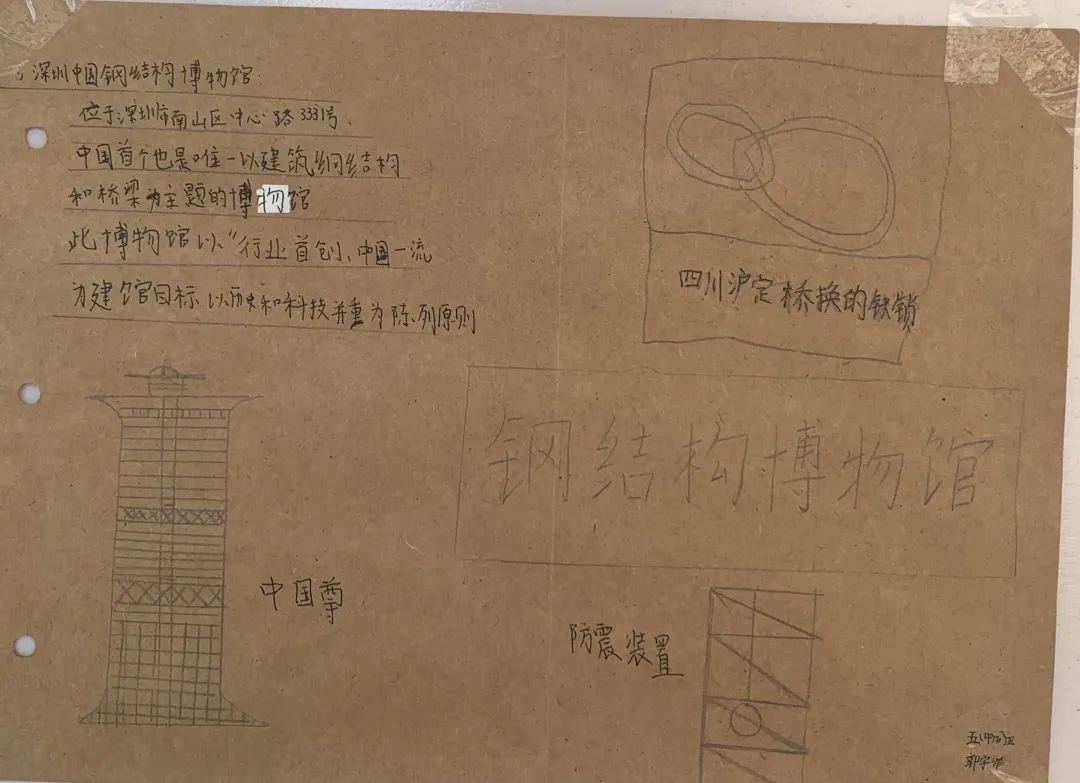 深圳中国钢结构博物馆
位于深圳市南山区中心路3331号、
中国首个也是唯一以建筑钢结构
和桥梁为主题的博物馆
此博物馆以“行业首创、中国一流
为建馆目标以历史和科技并重为陈列原则
四川沪定桥换的铁锁
钢结构博物馆
中国尊
防震装置